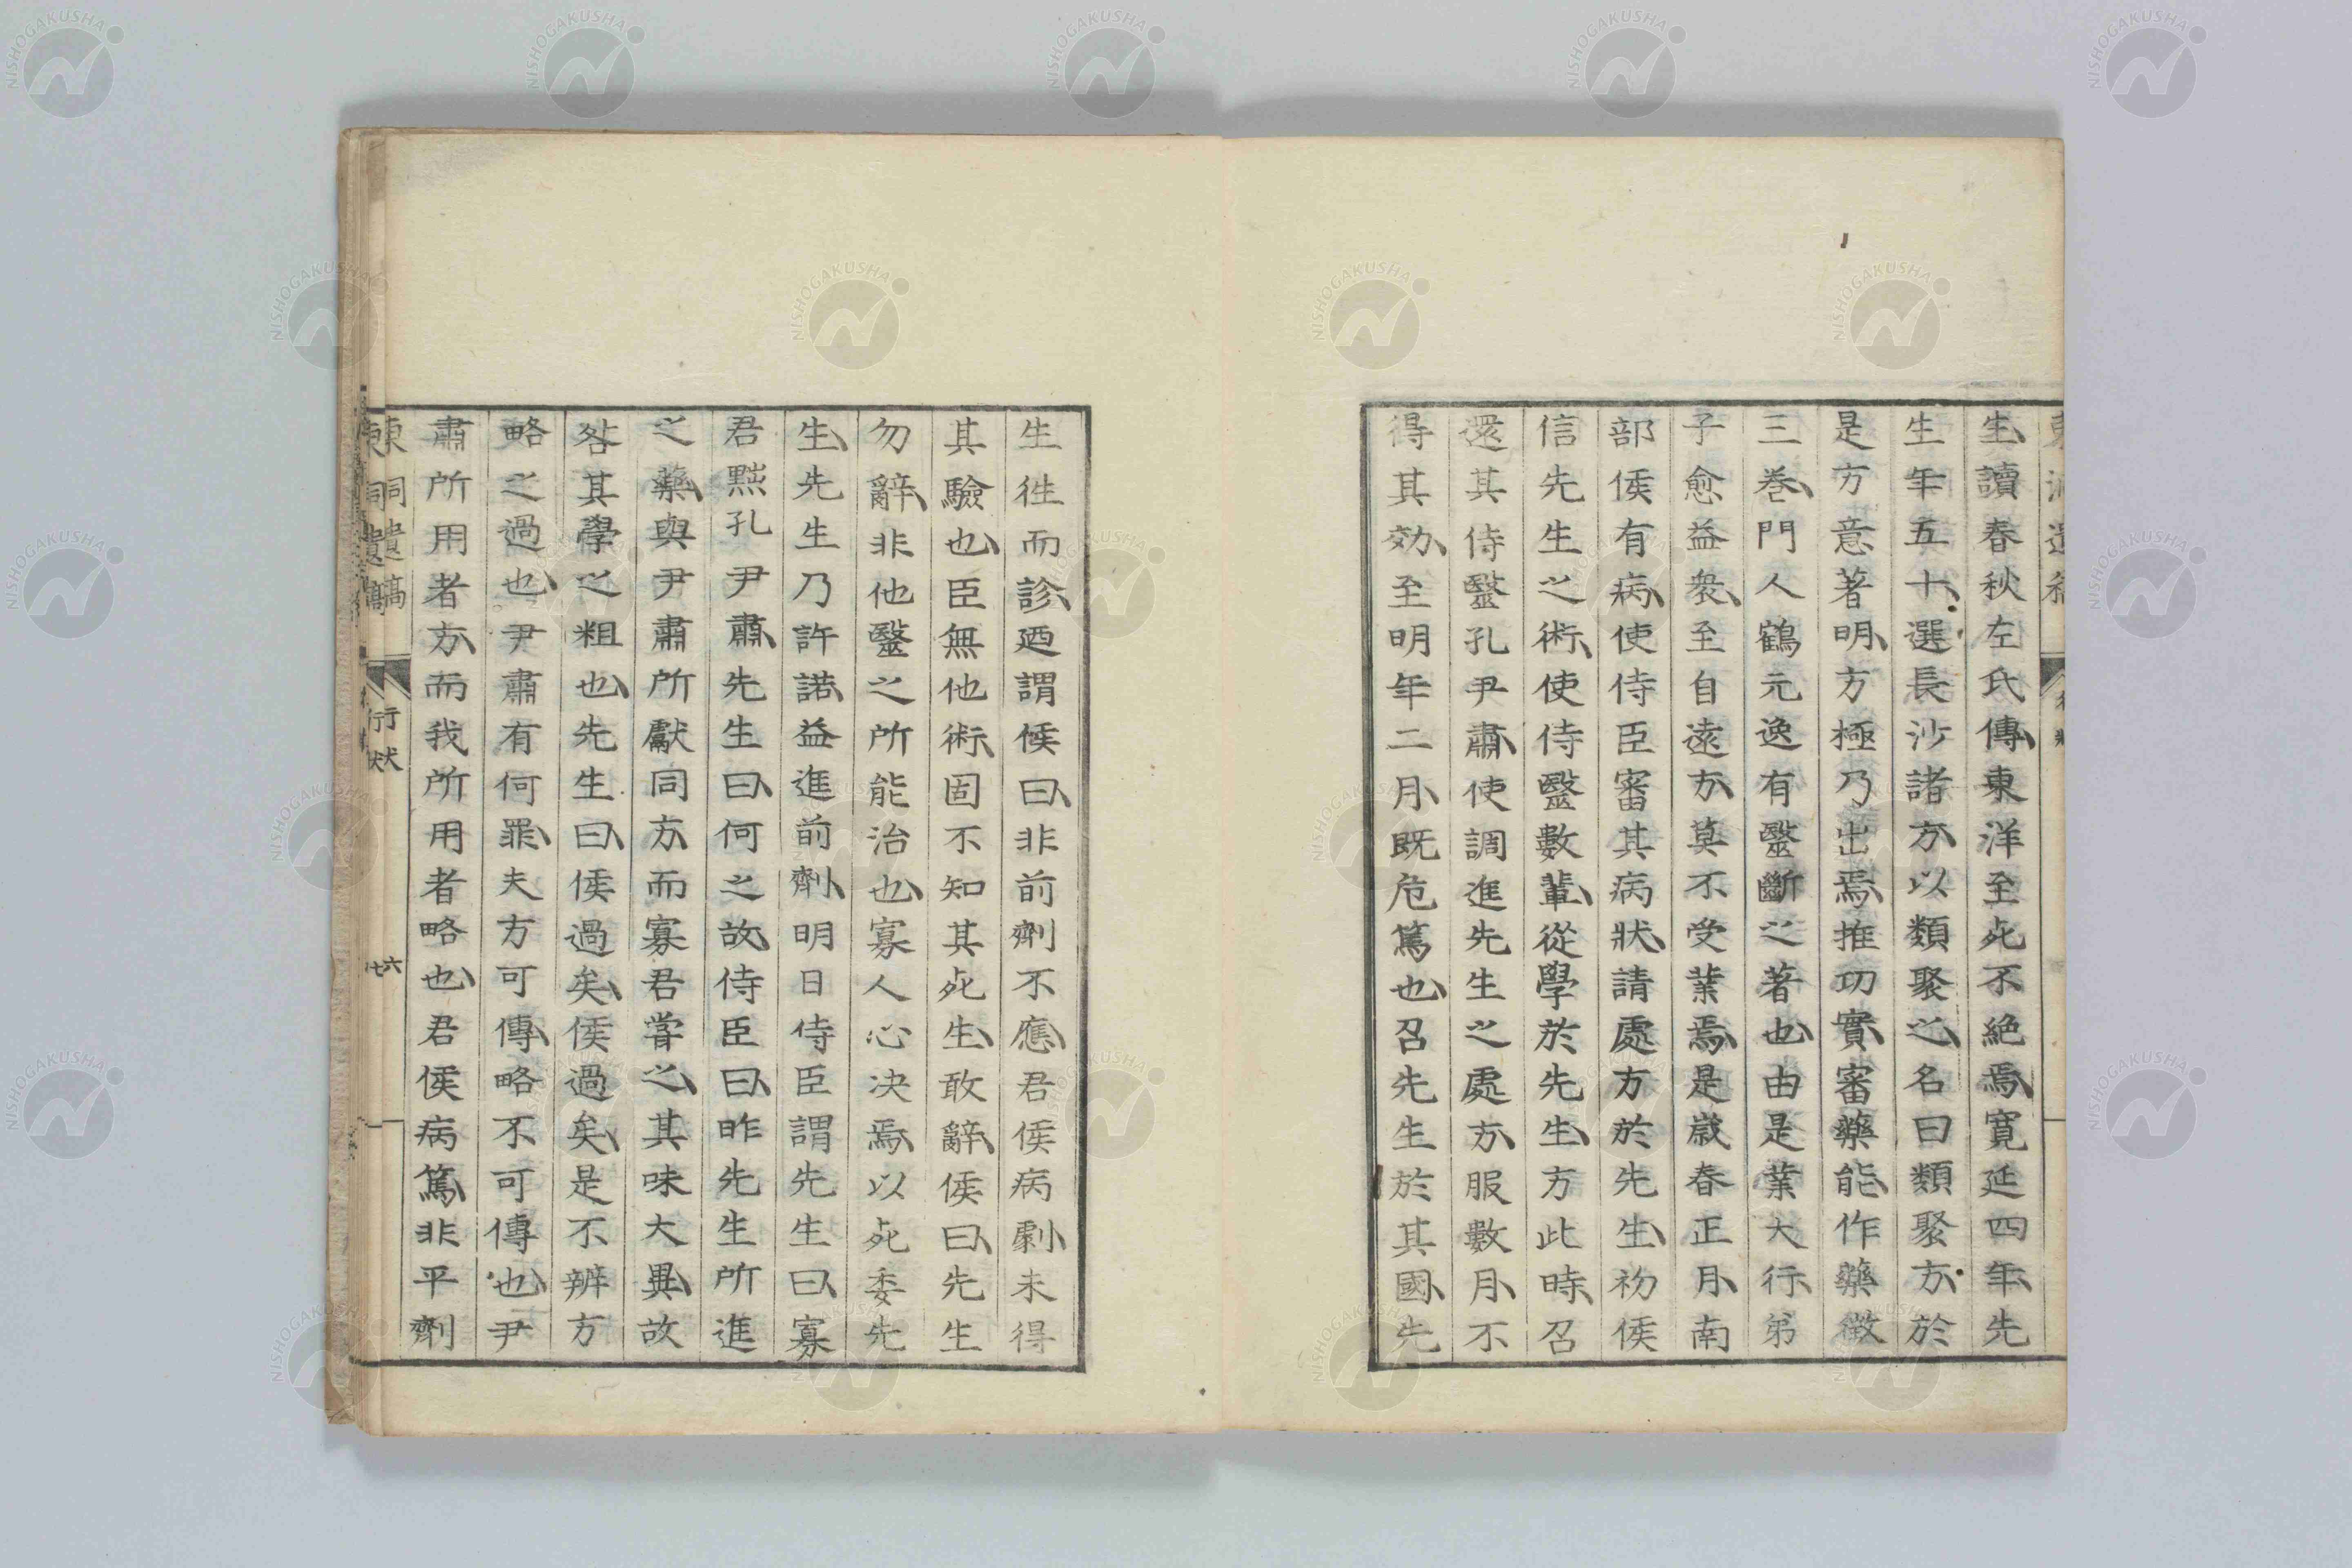 生、讀春秋左氏傳、東洋至死不絕焉、寬延四年、先
生年五十、選長沙諸方、以類聚之、名曰類聚方、於
是方意著明、方極乃出焉、推功實、審藥能、作藥徵
三卷、門人鶴元逸有毉斷之著也、由是業大行、弟
子愈益衆、至自遠方、莫不受業焉、是歲春正月、南
部侯有病、使侍臣審其病狀、請處方於先生、初侯
信先生之術、使侍毉數輩、從學於先生、方此時、召
還其侍毉孔尹肅、使調進先生之處方、服數月、不
得其効、至明年二月、既危篤也、召先生於其國、先
生往而診、廼謂侯曰、非前劑不應、君侯病劇、未得
其驗也、臣無他術、固不知其死生、敢辭、侯曰、先生
勿辭、非他毉之所能治也、寡人心決焉、以死委先
生、先生乃許諾、益進前劑、明日侍臣謂先生曰、寡
君黜孔尹肅、先生曰、何之故、侍臣曰、昨先生所進
之藥、與尹肅所獻同方、而寡君嘗之、其味大異、故
咎其學之粗也、先生曰、侯過矣、侯過矣、是不辨方
略之過也、尹肅有何罪、夫方可傳、略不可傳也、尹
肅所用者方、而我所用者略也、君侯病篤、非平劑
東洞遺稿 行狀 六